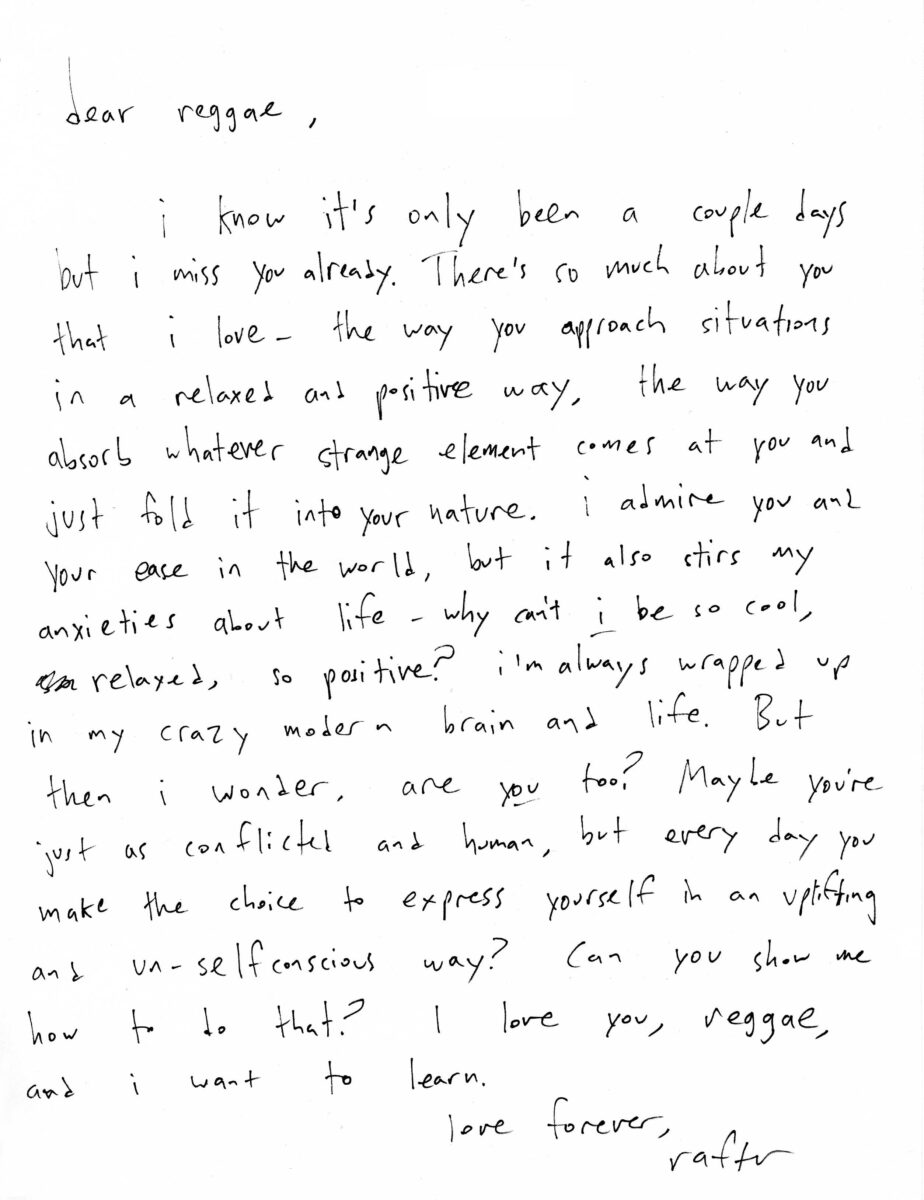 dear reggae,
i know it's only been a couple days
but i miss you already. There's so much about you
that i love - the way you approach situations
in a relaxed and positive way, the way you
absorb whatever strange element comes at you and
just fold it into your nature. i admire you and
your ease in the world, but it also stirs my
anxieties about life - why can't i be so cool,
relaxed, so positive? i'm always wrapped up
in my crazy modern brain and life. But
then i wonder, are you too? Maybe you're
just as conflicted and human, but every day you
make the choice to express yourself in an uplifting
and un-selfconscious way? Can you show me
how to do that? I love you, reggae,
and i want to learn.
love forever,
rafter